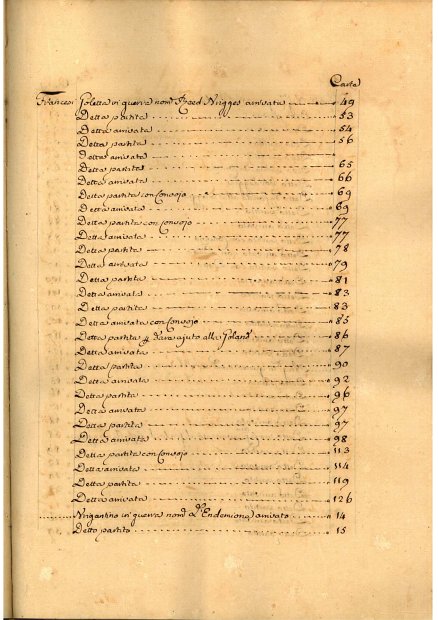 Carte
Francesi Goletta in guerra nom. arrivata 49
Detta partita 53
Detta arrivata 54
Detta partita 56
Detta arrivata
Detta partita 65
Detta arrivata 66
Detta partita con Convojo 69
Detta arrivata 69
Detta partita con Convojo 77
Detta arrivata 77
Detta partita 78
Detta arrivata 79
Detta partita 81
Detta arrivata 83
Detta partita 83
Detta arrivata con Convojo 85
Detta partita dare ajuto alla 86
Detta arrivata 87
Detta partita 90
Detta arrivata 92
Detta partita 96
Detta arrivata 97
Detta partita 97
Detta arrivata 98
Detta partita con Convojo 113
Detta arrivata 114
Detta partita 119
Detta arrivata 126
Brigantino in guerra nom. Endemione arrivato 14
Detto partito 15